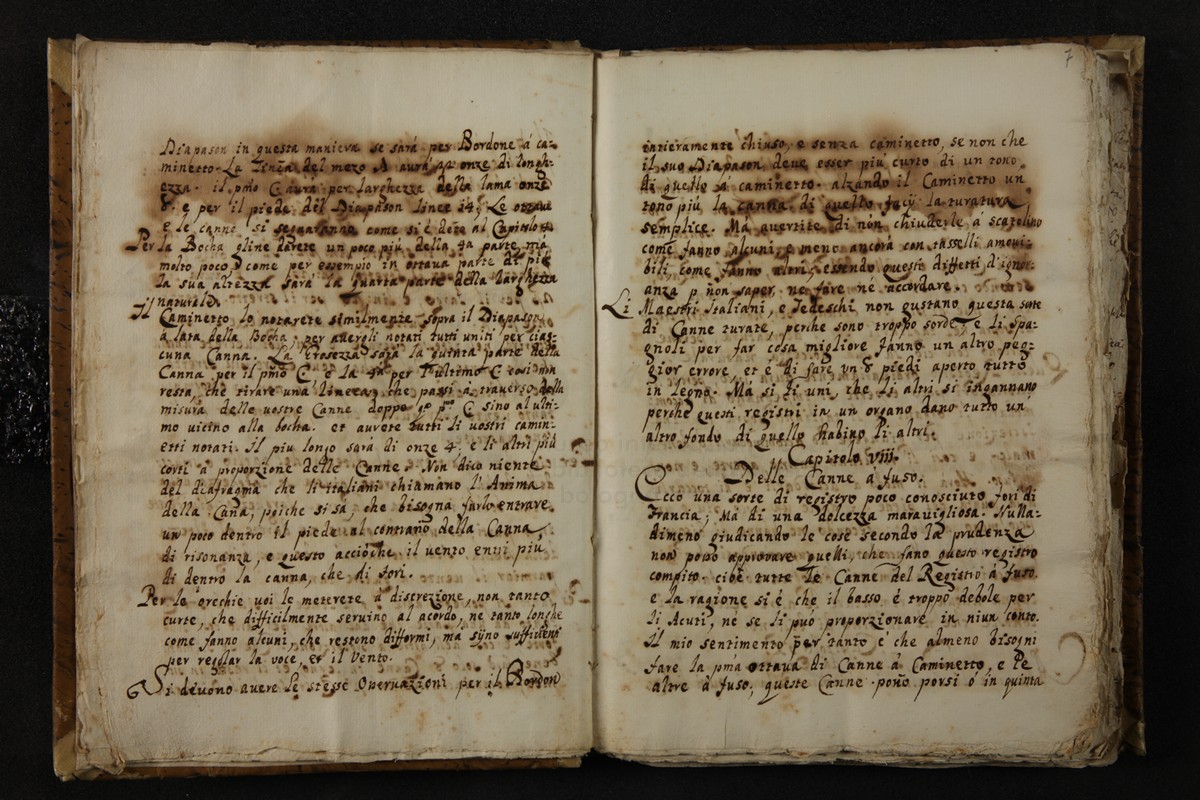 Diapason in questa maniera se sará per Bordone á ca-
minetto. La Linea del mezo A aurá 44 onze di longh-
ezza. il pmo C aura per larghezza della lama onze
8. e per il piede del Diapason linee 14. Le ottave
e le canne si segnaranno come si é deto al Capitolo
Per la Bocha gline darete un poco piú della 4a parte, ma
molto poco, come per essempio in ottava parte di piú
la sua altezza sará la quarta parte della larghezza
naturale.
Il Caminetto lo notarete similmente sopra il Diapason
a lata della bocha, per avergli notati tutti uniti per cias-
cuna Canna. La Grosezza sará la quinta parte della
Canna per il pmo C e la 4a per l'ultimo C cosi non
resta, che tirare una linea, che passi á traverso della
misura delle vostre Canne doppo il pmo C sino al ulti-
mo vicino alla bocha. et aurete tutti li vostri camin-
etti notati. Il piu longo sará di onze 4. e li altri piú
corti á proporzione delle Canne. Non dico niente
del diafragma che li italiani chiamano l'Anima
della Cana, poiche si sá, che bisogna farlo entrare
un poco dentro il piede al contrario della Canna
di risonanza, e questo accioche il vento entri piú
di dentro la canna, che di fori.
Per le orecchie voi le meterete á discrezione, non tanto
curte, che difficilmente servino al acordo, ne tanto longhe
come fanno alcuni, che restono difformi, ma sijno sufficienti
per regolar la voce, et il vento.
Si devono avere le stesse Observazioni per il Bordon
7
intieramente chiuso, e senza caminetto, se non che
il suo Diapason deve esser piú curto di un tono
di quello á caminetto. alzando il Caminetto un
tono piú la canna, di quello facij la turatura
semplice. Má avertite di nón chiuderle á scatolino
come fanno alcuni, e meno ancorá con tasselli amovi-
bili, come fanno altri, essendo questi diffetti d'igno-
anza p non saper, ne fare ne accordare.
Li Maestri Italiani, e Tedeschi non gustano questa sorte
di Canne turate, perche sono troppo sorde, e li Spa-
gnoli per far cosa migliore fanno un altro peg-
gior errore, et é di fare un 8 piedi aperto tutto
in legno. Má si li uni, che li altri si ingannano
perche questi registri in un organo dano tutto un
altro fondo di quello habino li altri.
Capitolo viii.
Delle Canne á fuso.
Ecco una sorte di registro poco conosciuto fori di
Francia; Má di una dolcezza maravigliosa. Nulla-
dimeno giudicando le cose secondo la prudenza
non posso approvare quelli, che fano questo registro
compito. cióe tutte le Canne del Registro á fuso.
e la ragione si é che il basso é troppo debole per
li Acuti, ne se li puó proporzionare in niun conto.
Il mio sentimento per tanto e che almeno bisogni
fare la pma ottava di Canne á Caminetto, e le
altre á fuso; queste Canne pono porsi ó in quinta